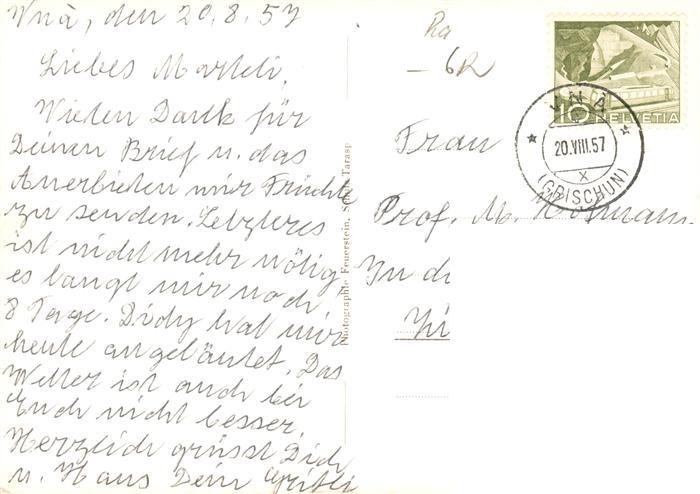 Vnà, den 20.8.57
Liebes Marteli,
Vielen Dank für
Deinen Brief u. das
Anerbieten mir Früchte
zu senden. Letzteres
ist nicht mehr nötig,
es langt mir noch
8 Tage. Didy hat mir
heute angeläutet. Das
Wetter ist auch bei
Euch nicht besser,
Herzlich grüsst Dich
u. Hans Dein
Photographie Feuerstein, Schuls-Tarasp
6R
10 HELVETIA
VNÀ
20.VIII.57
X
(GRISCHUN)
Frau
Prof. M. Hofmann
In d